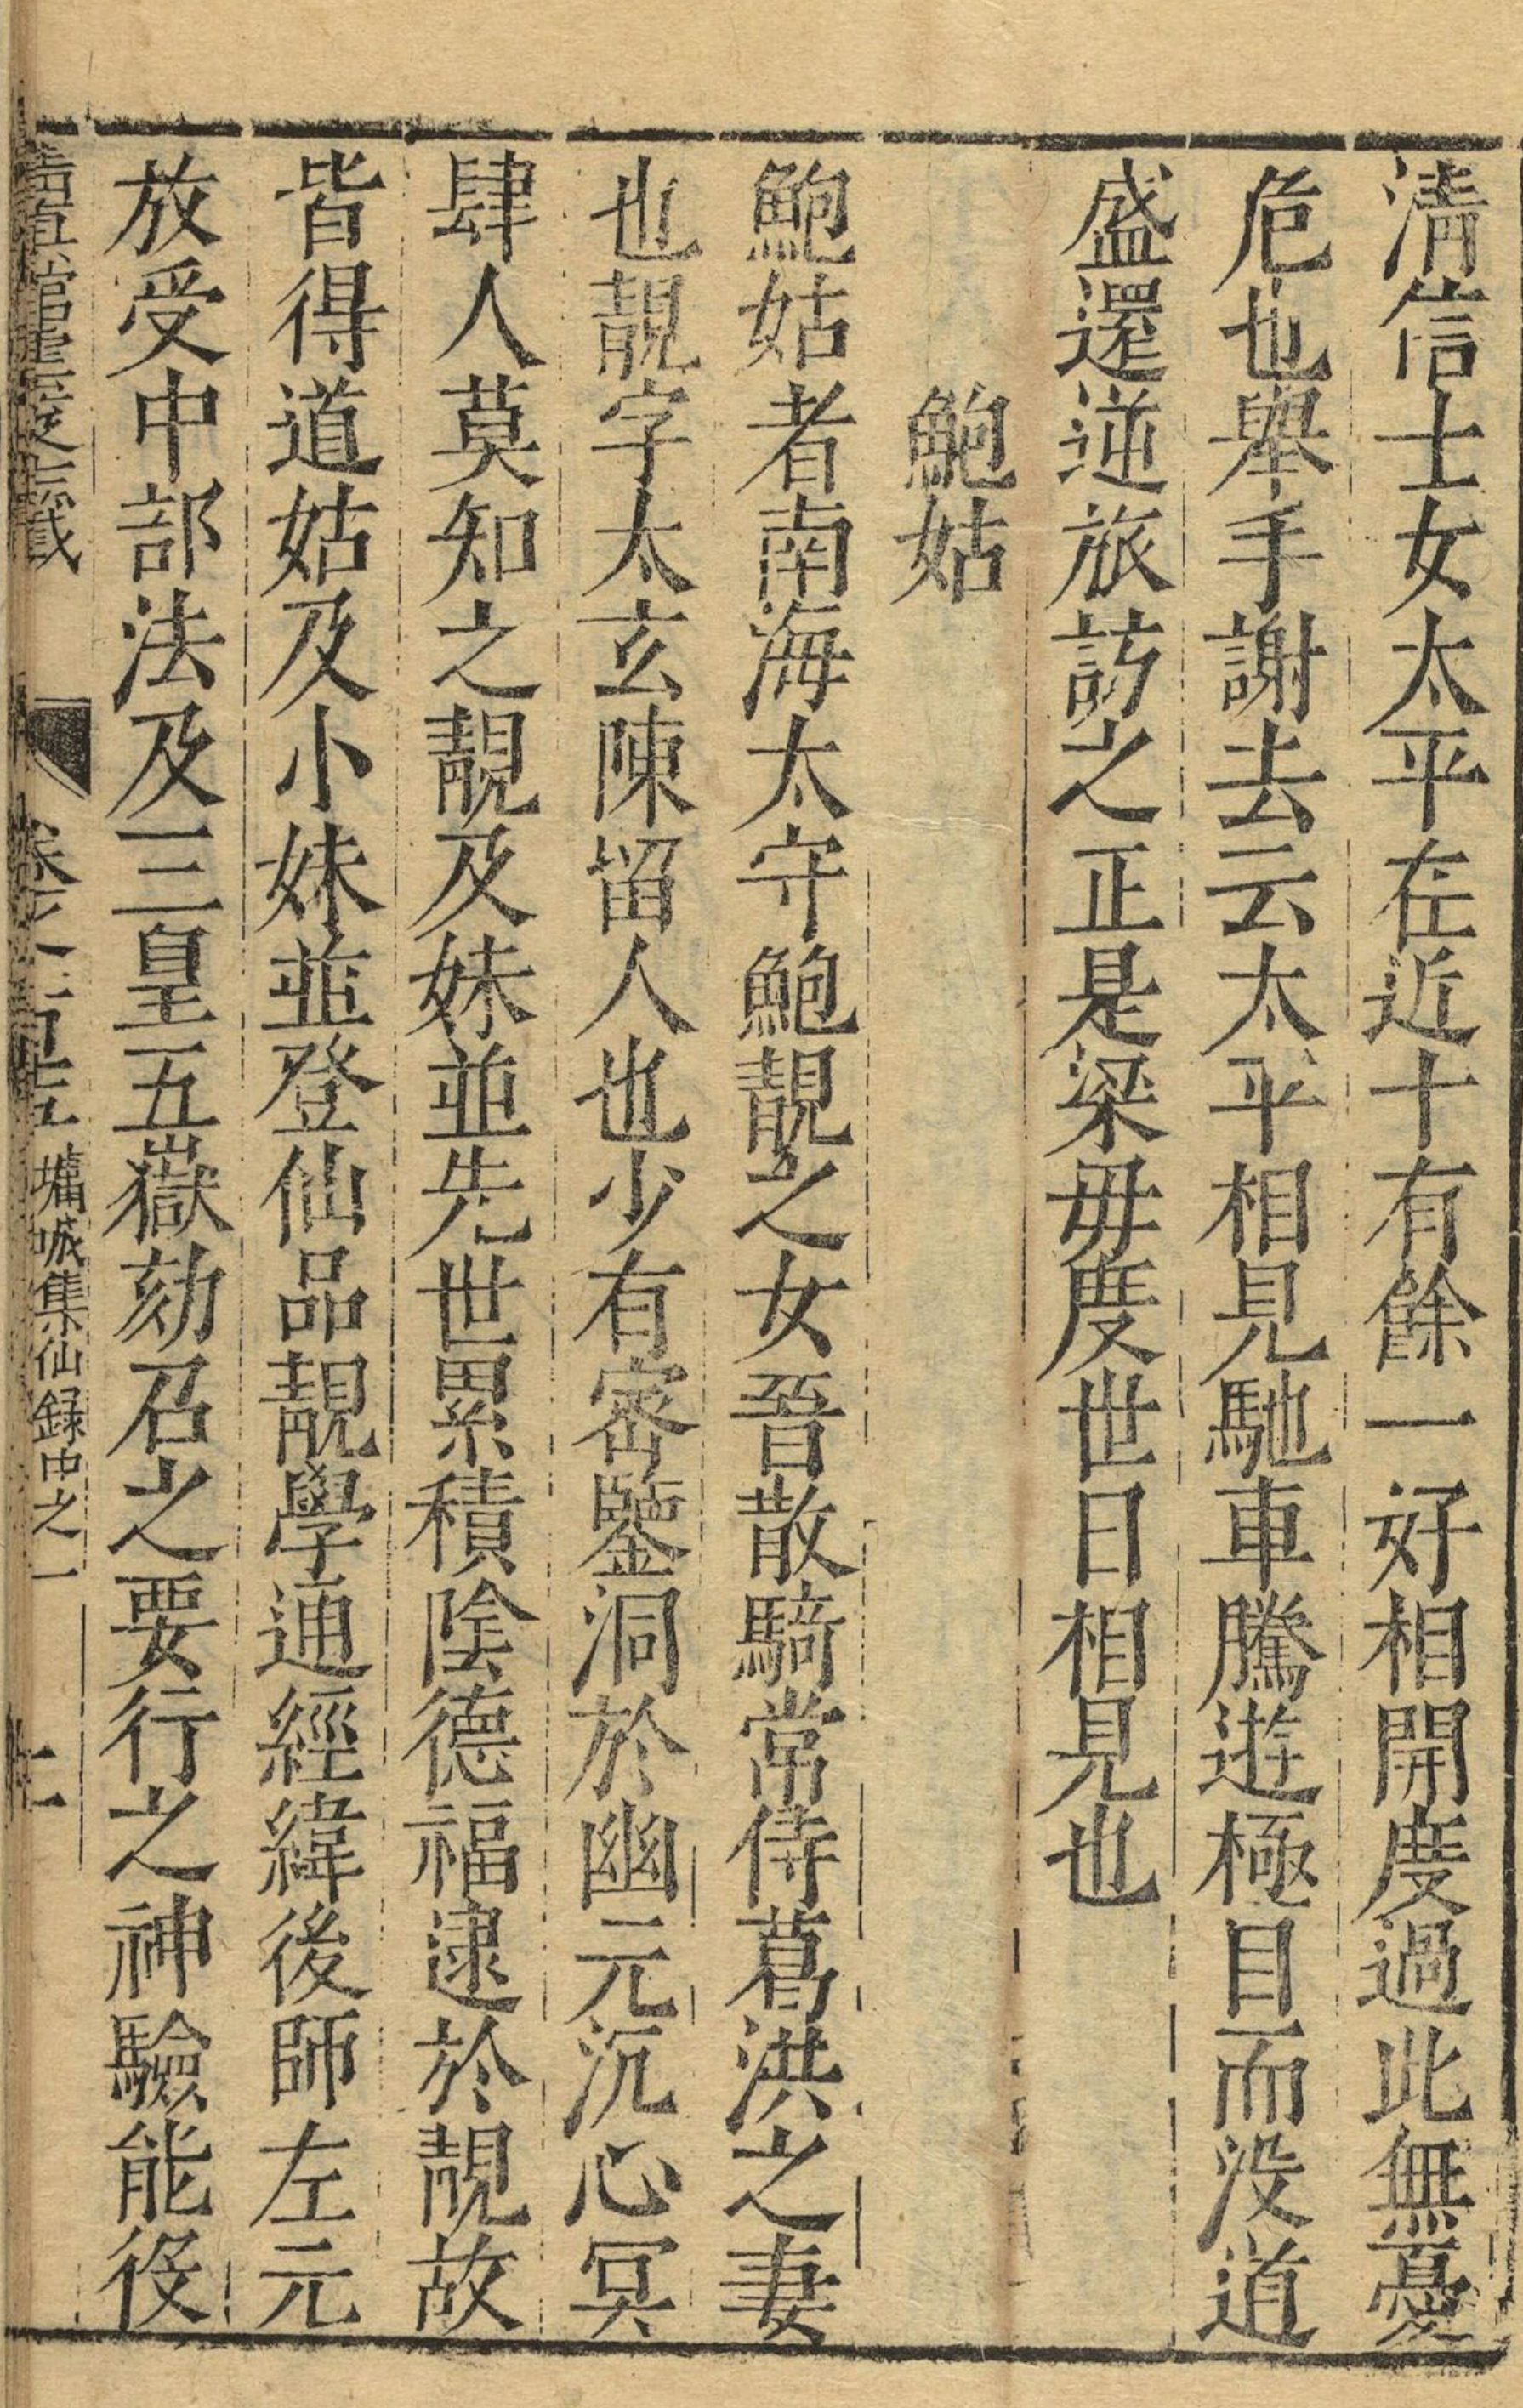 淸信士女太平在近十有餘一好相開度過此無憂
危也舉手謝去云太平相見馳車騰遊極目而没道
盛還逆旅訪之正是梁毋度世日相見也
鮑姑
鮑姑者南海太守鮑靚之女晉散騎常侍葛洪之妻
也靚字太玄陳留人也少有密鑒洞於幽元沉心冥
肆人莫知之靚及妹並先世累積陰德福逮於靚故
皆得道姑及小妹並登仙品靚學通經緯後師左元
放受中部法及三皇五嶽劾召之要行之神驗能役
墉城集仙録中之一